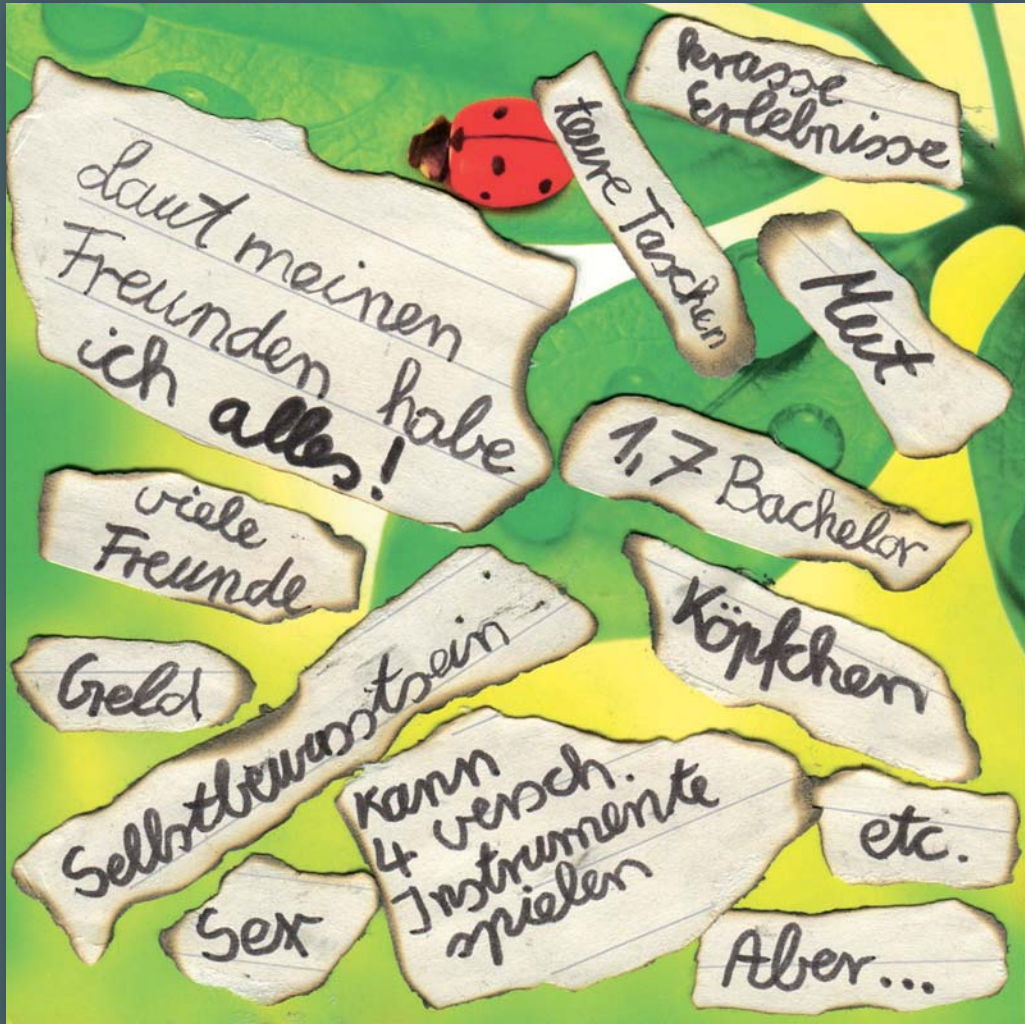 Laut meinen
Freunden habe
ich alles!
krasse
Erlebnisse
teure Taschen
Mut
1,7 Bachelor
viele
Freunde
Köpfchen
Geld
Selbstbewusstsein
kann
4 versch.
Instrumente
spielen
etc.
Sex
Aber...